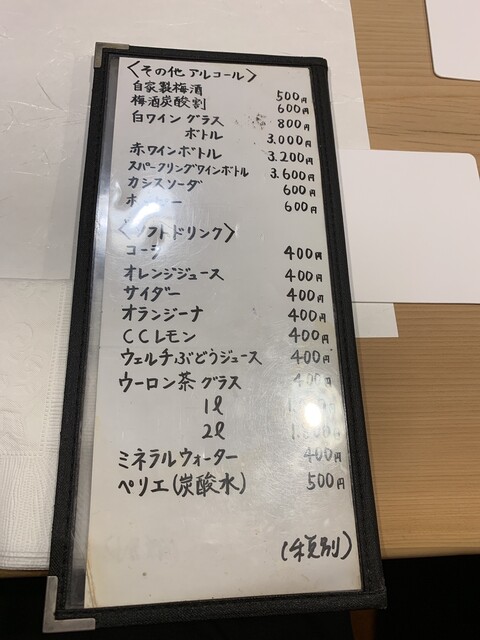 〈その他アルコール〉
自家製梅酒 500円
梅酒炭酸割 600円
白ワイン グラス 800円
ボトル 3.000円
赤ワインボトル 3.200円
スパークリングワインボトル 3.600円
カシスソーダ 600円
600円
〈ソフトドリンク〉
コーラ 400円
オレンジジュース 400円
サイダー 400円
オランジーナ 400円
CCレモン 400円
ウェルチぶどうジュース 400円
ウーロン茶 グラス 400円
1ℓ
2ℓ
ミネラルウォーター 400円
ペリエ(炭酸水) 500円
(税別)